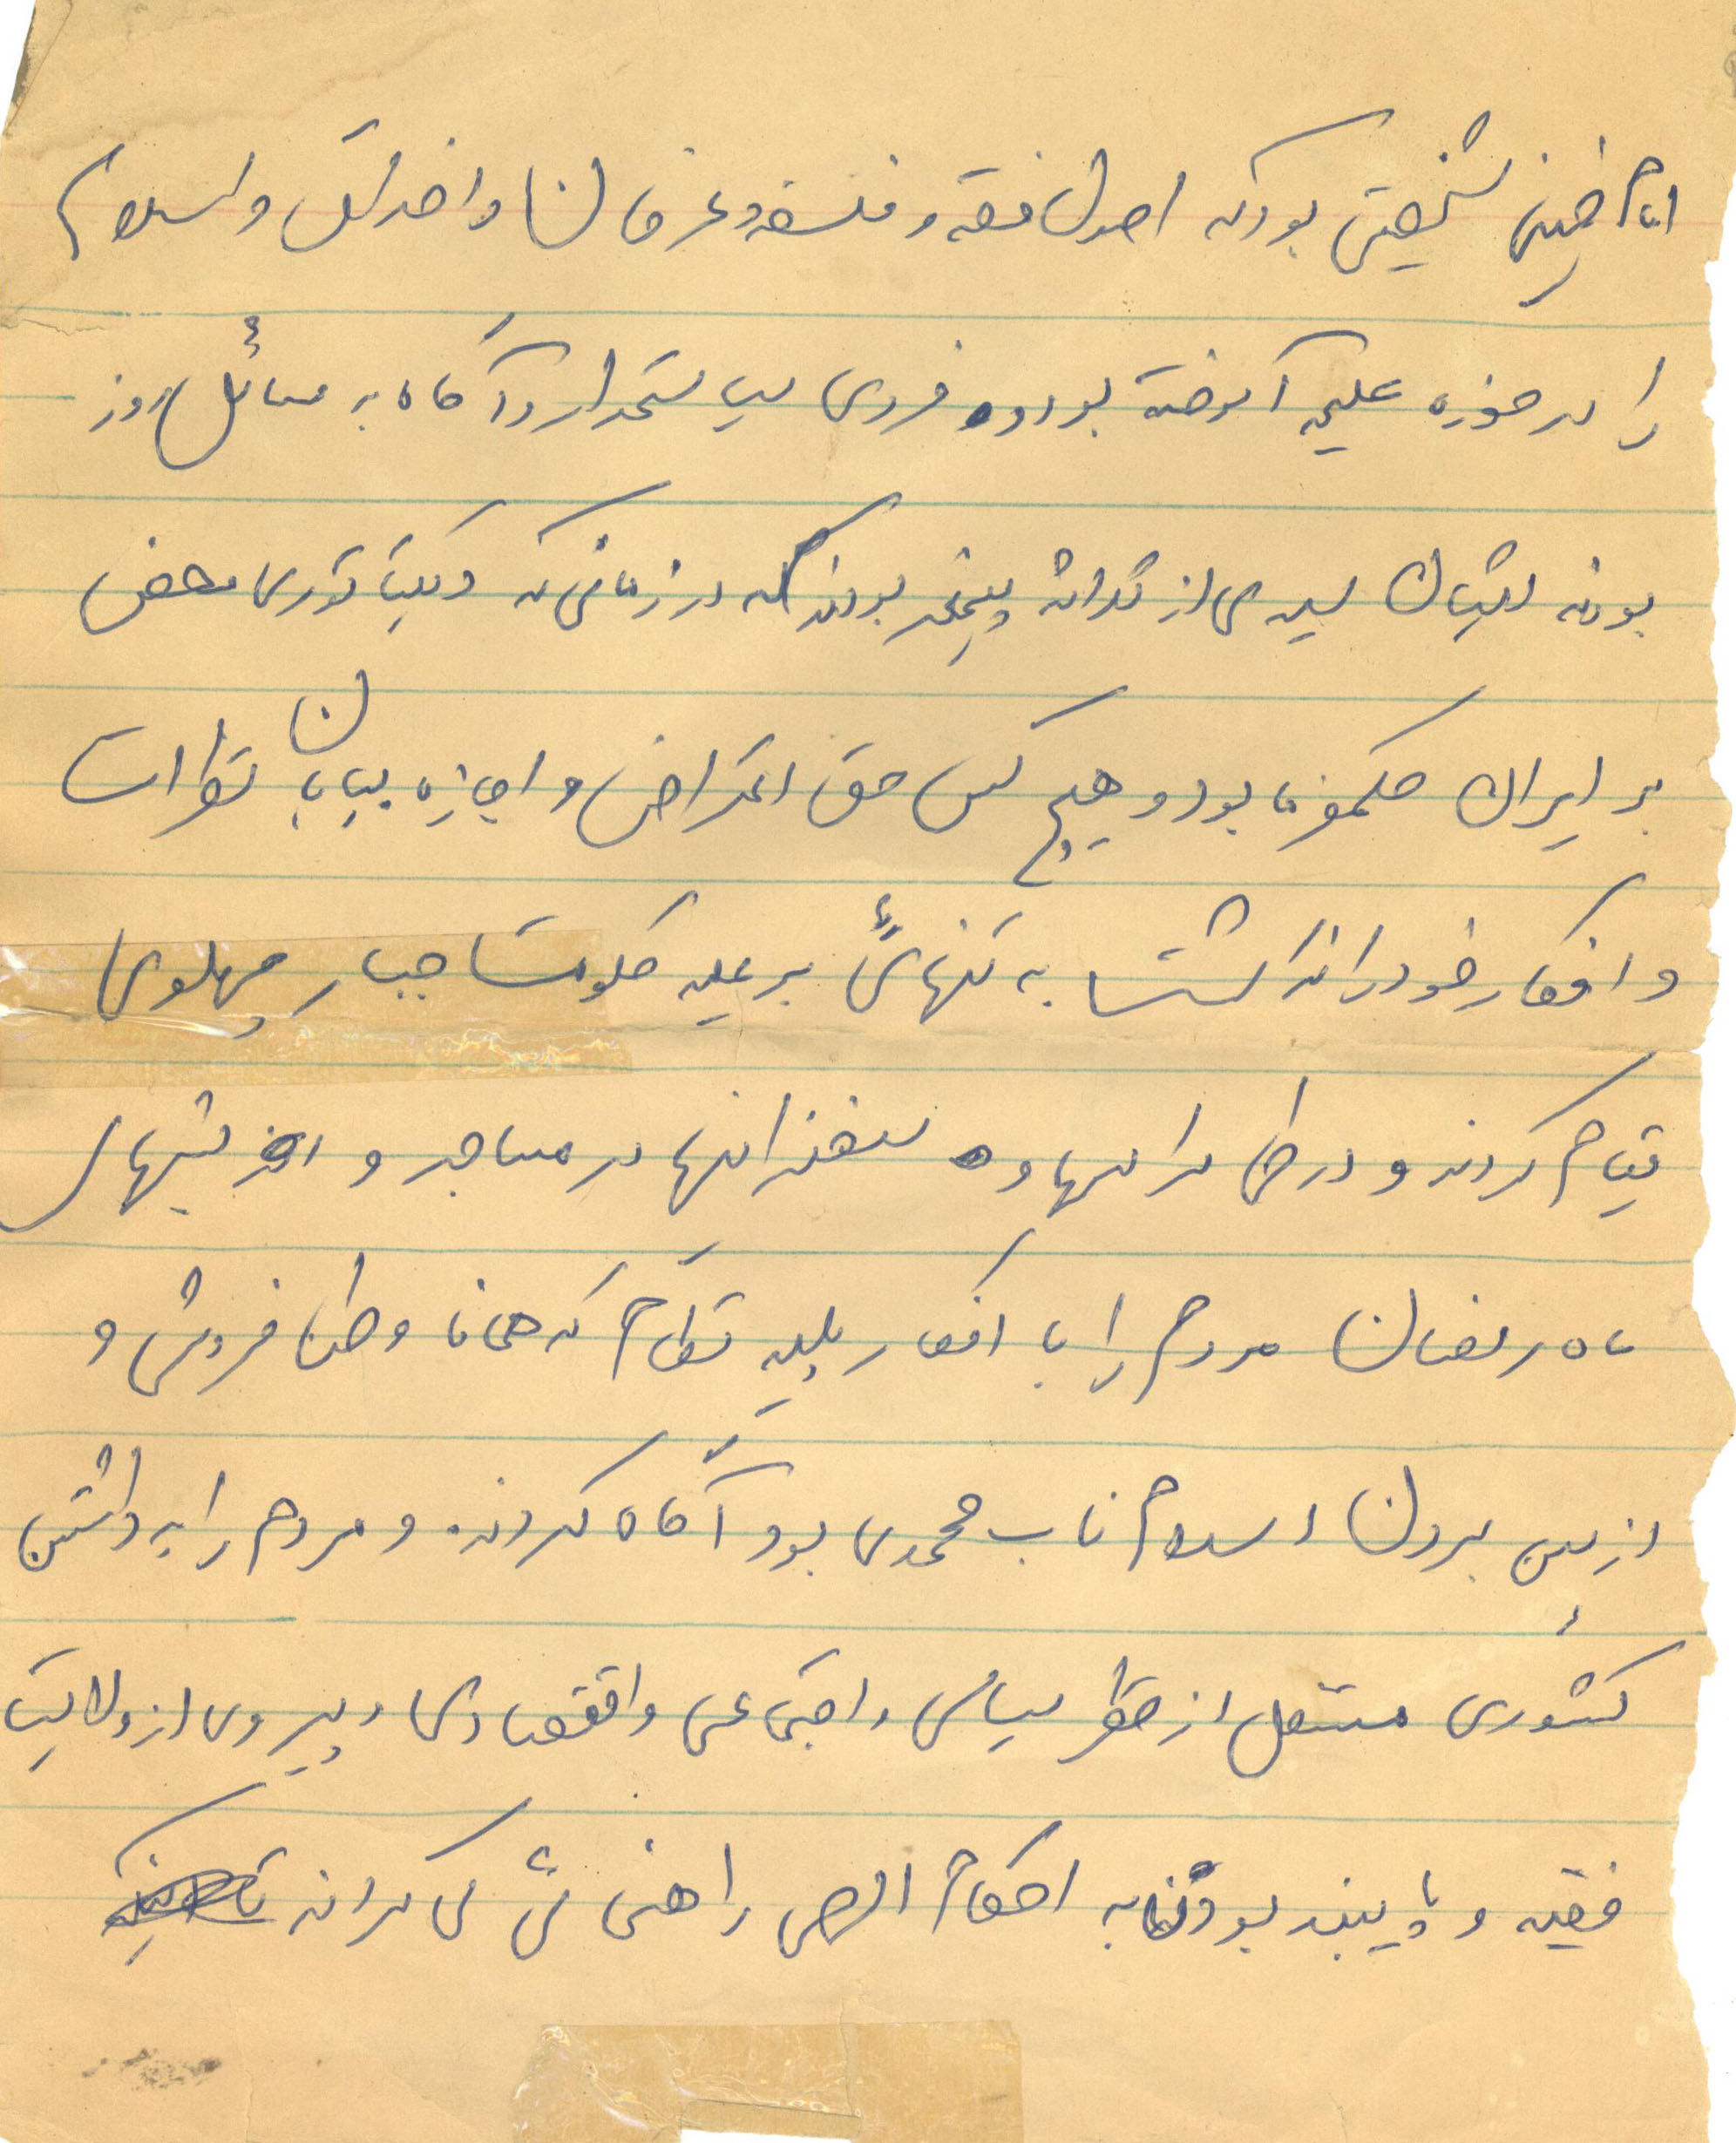 امام خمینی شخصیتی بود که اصول فقه و فلسفه و عرفان و اخلاق و اسلام
را در حوزه علمیه آموخته بود و فردی سیاستمدار و آگاه به مسائل روز
بودند ایشان سیدی از تبار پیغمبر بودند که در زمانی که دیکتاتوری محض
بر ایران حکمفرما بود و هیچ کس حق اعتراض و اجازه بیان نظرات
و افکار خود را نداشت به تنهائی بر علیه حکومت جبار پهلوی
قیام کردند و در طی درسها و سخنرانیها در مساجد و در شبهای
ماه رمضان مردم را با افکار پلید نظام که همانا وطن فروشی و
از بین بردن اسلام ناب محمدی بود آگاه کردند. و مردم را به داشتن
کشوری مستقل از نظر سیاسی و اجتماعی و اقتصادی و پیروی از ولایت
فقیه و پایبند بودن به احکام الهی راهنمائی می کردند